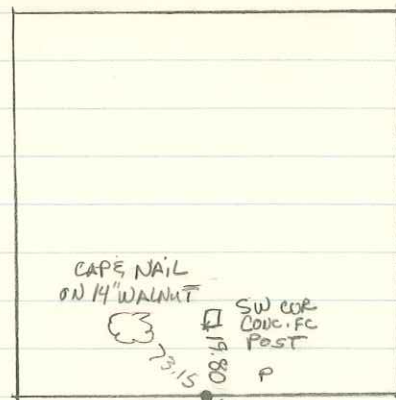 CAP & NAIL
ON 14" WALNUT
SW COR
CONC. FC
POST
19.80
73.15
P